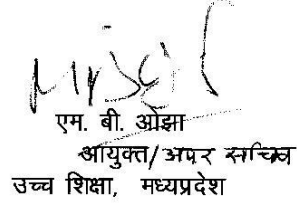 एम. बी. ओझा
आयुक्त/अपर सचिव
उच्च शिक्षा, मध्यप्रदेश